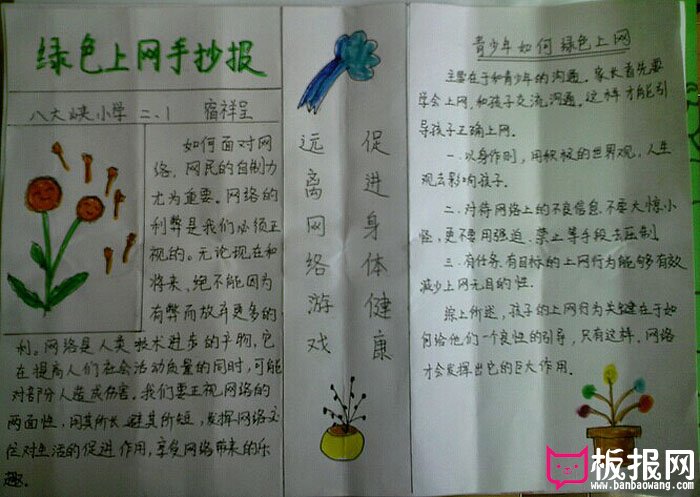 绿色上网手抄报
八大峡小学 二、1 宿祥呈
如何面对网
络，网民的自制力
尤为重要。网络的
利弊是我们必须正
视的。无论现在和
将来，绝不能因为
有弊而放弃更多的
利。网络是人类技术进步的产物，它
在提高人们社会活动质量的同时，可能
对部分人造成伤害。我们要正视网络的
两面性，用其所长，避其所短，发挥网络文
对生活的促进作用，享受网络带来的乐
趣。
促进身体健康
远离网络游戏
青少年如何绿色上网
主要在于和青少年的沟通。家长首先要
学会上网，和孩子交流，沟通。这样才能引
导孩子正确上网。
一.以身作则，用积极的世界观，人生
观去影响孩子。
二.对待网络上的不良信息.不要大惊小
怪，更不要用强迫.禁止等手段去压制
三.有任务.有目标的上网行为能够有效
减少上网无目的性.
综上所述，孩子的上网行为关键在于如
何给他们一个良性的引导，只有这样.网络
才会发挥出它的巨大作用.
板报网
www.banbaowang.com